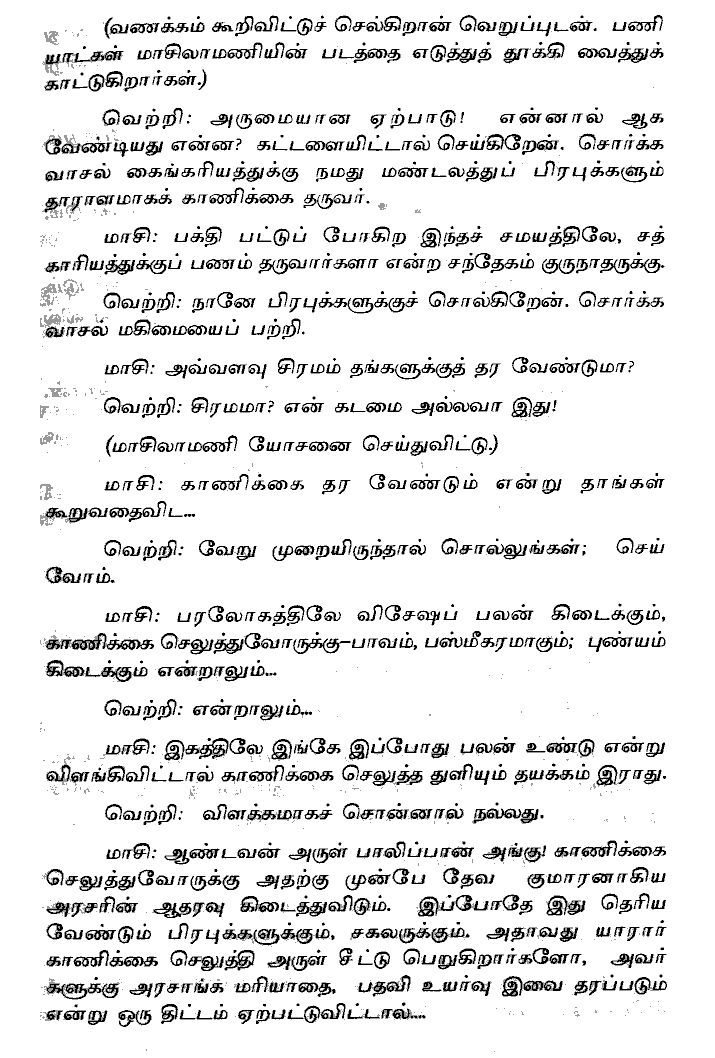 (வணக்கம் கூறிவிட்டுச் செல்கிறான் வெறுப்புடன். பணி
யாட்கள் மாசிலாமணியின் படத்தை எடுத்துத் தூக்கி வைத்துக்
காட்டுகிறார்கள்.)
வெற்றி: அருமையான ஏற்பாடு! என்னால் ஆக
வேண்டியது என்ன? கட்டளையிட்டால் செய்கிறேன். சொர்க்க
வாசல் கைங்கரியத்துக்கு நமது மண்டலத்துப் பிரபுக்களும்
தாராளமாகக் காணிக்கை தருவர்.
மாசி: பக்தி பட்டுப் போகிற இந்தச் சமயத்திலே, சத்
காரியத்துக்குப் பணம் தருவார்களா என்ற சந்தேகம் குருநாதருக்கு.
வெற்றி: நானே பிரபுக்களுக்குச் சொல்கிறேன். சொர்க்க
வாசல் மகிமையைப் பற்றி.
மாசி: அவ்வளவு சிரமம் தங்களுக்குத் தர வேண்டுமா?
வெற்றி: சிரமமா? என் கடமை அல்லவா இது!
(மாசிலாமணி யோசனை செய்துவிட்டு.)
மாசி: காணிக்கை தர வேண்டும் என்று தாங்கள்
கூறுவதைவிட...
வெற்றி: வேறு முறையிருந்தால் சொல்லுங்கள்; செய்
வோம்.
மாசி: பரலோகத்திலே விசேஷப் பலன் கிடைக்கும்,
காணிக்கை செலுத்துவோருக்கு–பாவம், பஸ்மீகரமாகும்; புண்யம்
கிடைக்கும் என்றாலும்...
வெற்றி: என்றாலும்...
மாசி: இகத்திலே இங்கே இப்போது பலன் உண்டு என்று
விளங்கிவிட்டால் காணிக்கை செலுத்த துளியும் தயக்கம் இராது.
வெற்றி: விளக்கமாகச் சொன்னால் நல்லது.
மாசி: ஆண்டவன் அருள் பாலிப்பான் அங்கு! காணிக்கை
செலுத்துவோருக்கு அதற்கு முன்பே தேவ குமாரனாகிய
அரசரின் ஆதரவு கிடைத்துவிடும். இப்போதே இது தெரிய
வேண்டும் பிரபுக்களுக்கும், சகலருக்கும். அதாவது யாரார்
காணிக்கை செலுத்தி அருள் சீட்டு பெறுகிறார்களோ, அவர்
களுக்கு அரசாங்க மரியாதை, பதவி உயர்வு இவை தரப்படும்
என்று ஒரு திட்டம் ஏற்பட்டுவிட்டால்....